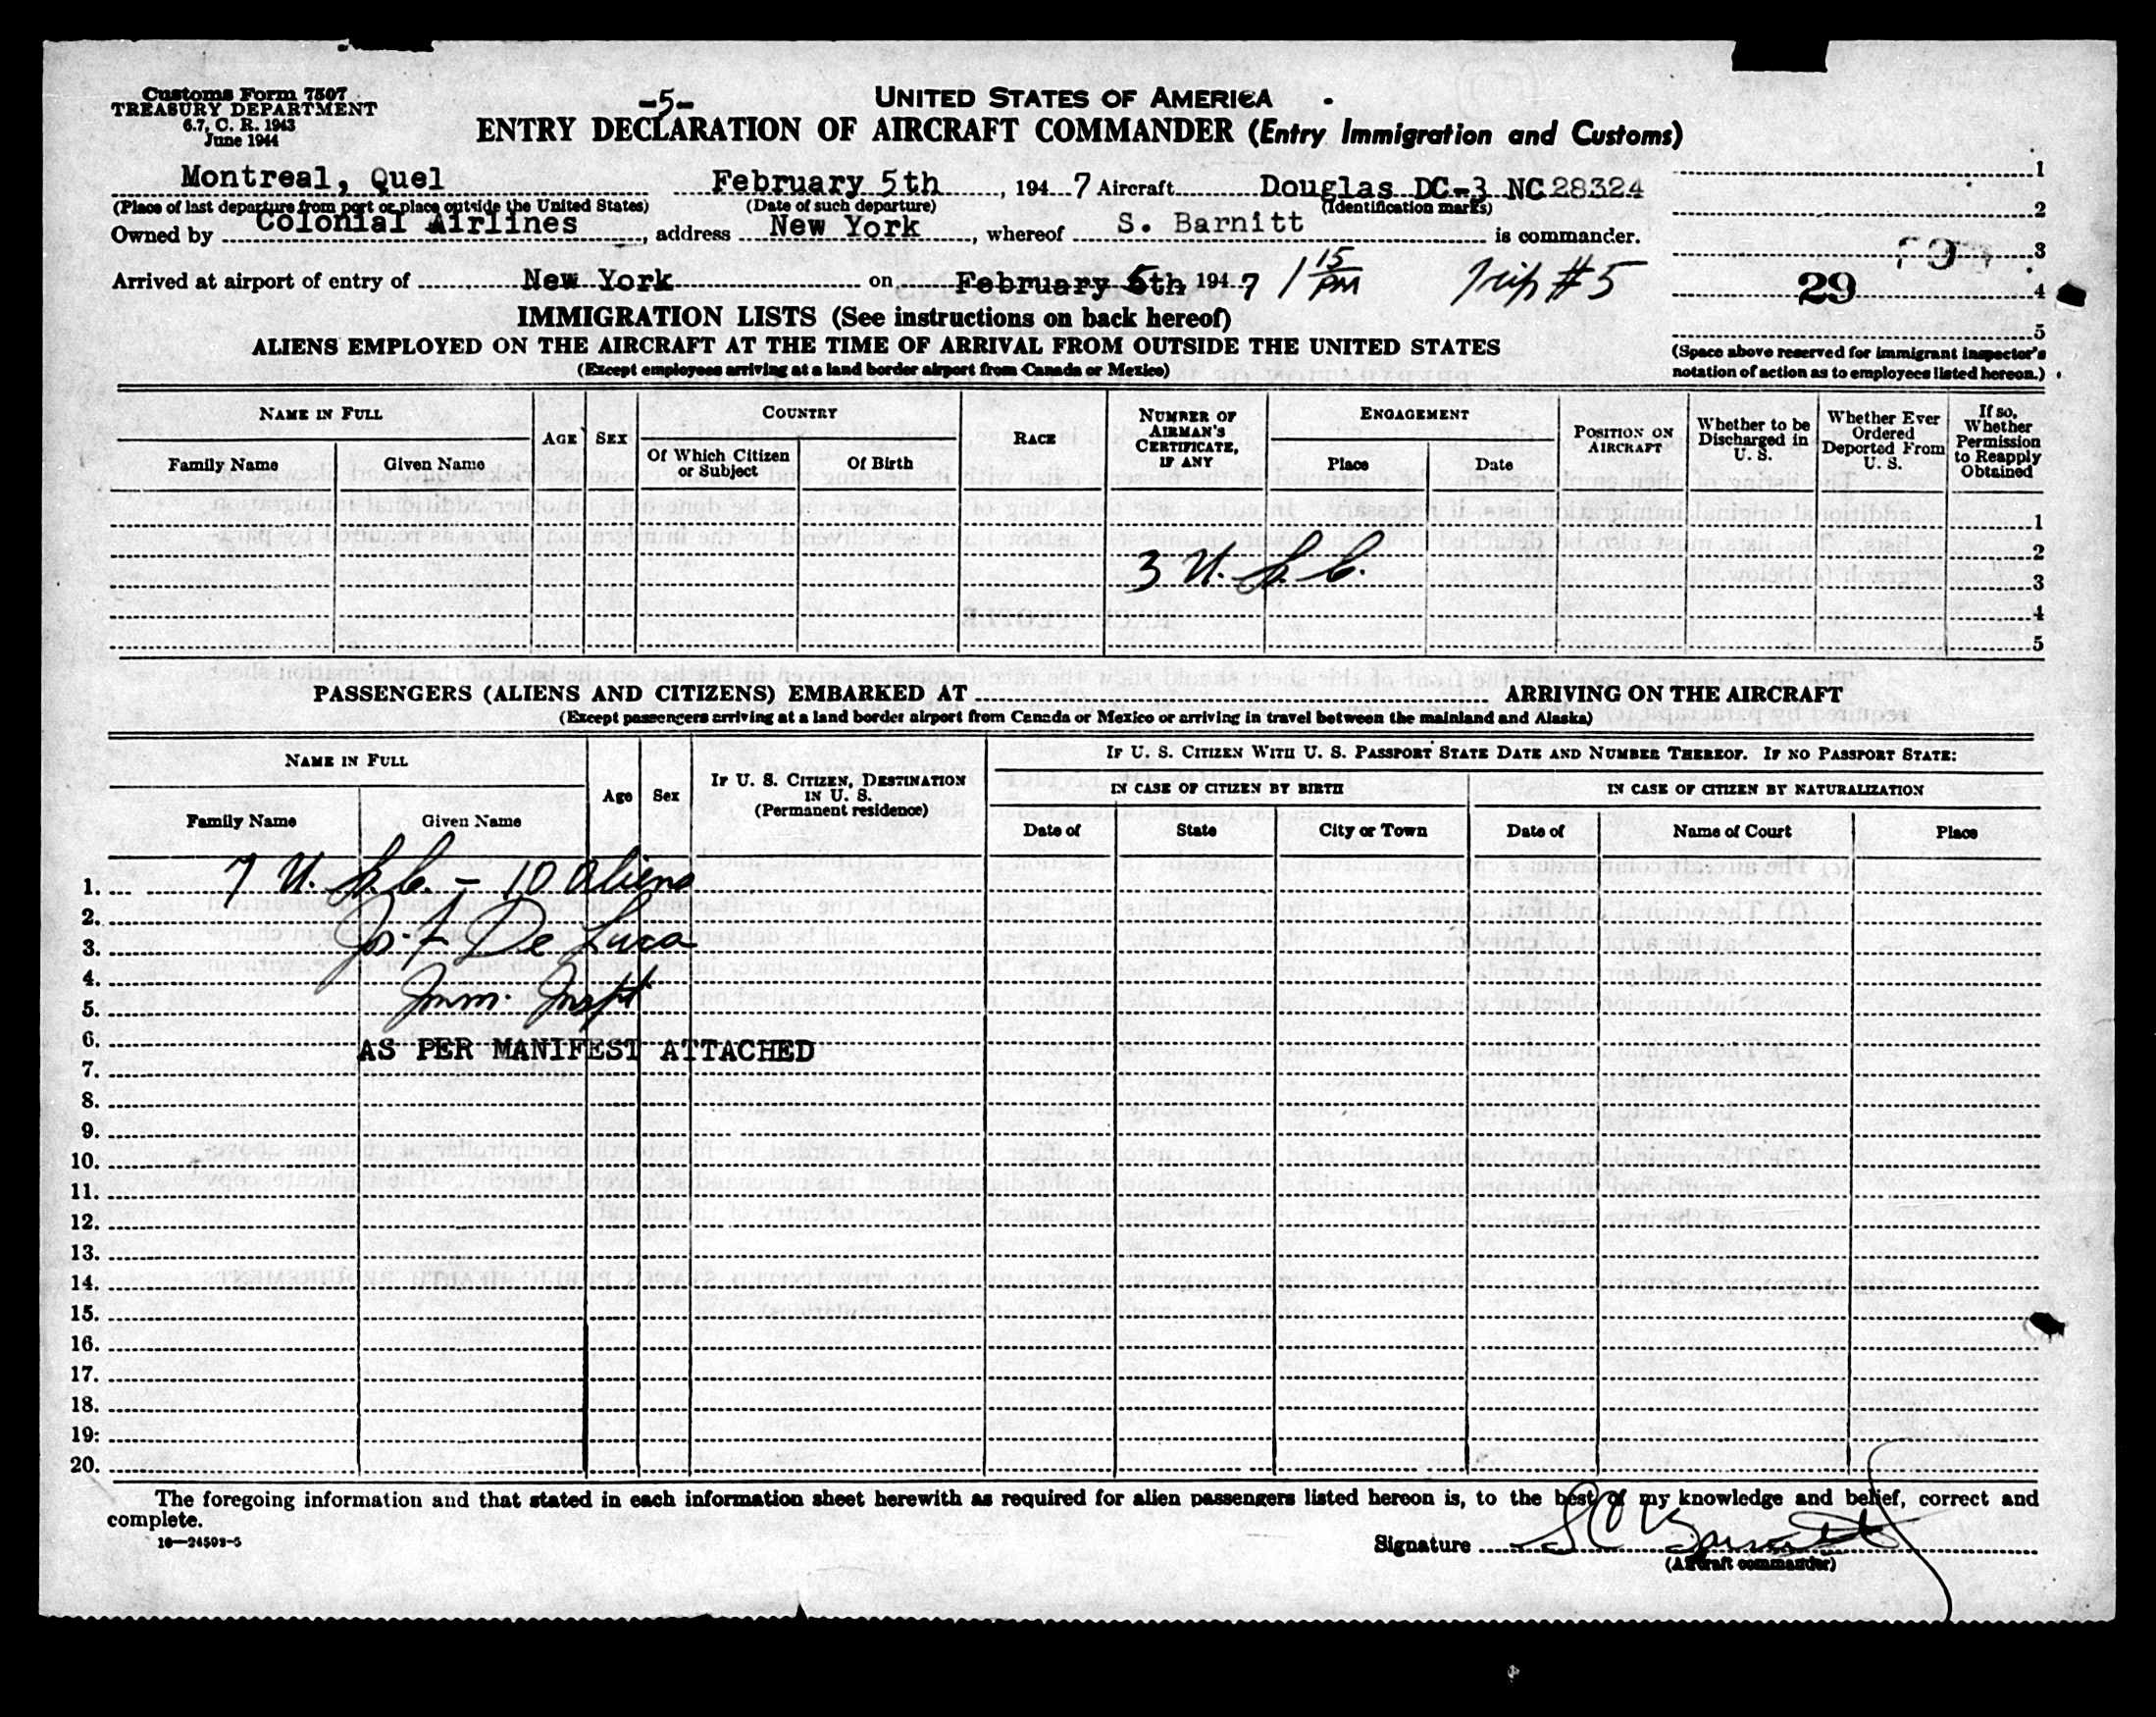 Customs Form 7507
TREASURY DEPARTMENT
6.7, C. R. 1943
June 1944
-5-
UNITED STATES OF AMERICA
ENTRY DECLARATION OF AIRCRAFT COMMANDER (Entry Immigration and Customs)
Montreal, Quel February 5th, 1947 Aircraft Douglas DC-3 NC 28324
(Place of last departure from port or place outside the United States) (Date of such departure) (Identification marks)
Owned by Colonial Airlines, address New York, whereof S. Barnitt is commander.
Arrived at airport of entry of New York on February 5th 1947 1 15 PM Trip #5
1
2
3
29 4
5
(Space above reserved for immigrant inspector's notation of action as to employees listed hereon.)
IMMIGRATION LISTS (See instructions on back hereof)
ALIENS EMPLOYED ON THE AIRCRAFT AT THE TIME OF ARRIVAL FROM OUTSIDE THE UNITED STATES
(Except employees arriving at a land border airport from Canada or Mexico)
NAME IN FULL
Family Name
Given Name
AGE
SEX
COUNTRY
Of Which Citizen or Subject
Of Birth
RACE
NUMBER OF AIRMAN'S CERTIFICATE, IF ANY
ENGAGEMENT
Place
Date
POSITION ON AIRCRAFT
Whether to be Discharged in U. S.
Whether Ever Ordered Deported From U. S.
If so, Whether Permission to Reapply Obtained
1
2
3 U. S. C.
3
4
5
PASSENGERS (ALIENS AND CITIZENS) EMBARKED AT ARRIVING ON THE AIRCRAFT
(Except passengers arriving at a land border airport from Canada or Mexico or arriving in travel between the mainland and Alaska)
NAME IN FULL
Family Name
Given Name
Age
Sex
IF U. S. CITIZEN, DESTINATION IN U. S.
(Permanent residence)
IF U. S. CITIZEN WITH U. S. PASSPORT STATE DATE AND NUMBER THEREOF. IF NO PASSPORT STATE:
IN CASE OF CITIZEN BY BIRTH
IN CASE OF CITIZEN BY NATURALIZATION
Date of
State
City or Town
Date of
Name of Court
Place
1. 7 U. S. C. - 10 Aliens
2.
3. Jos. F. De Luca
4.
5. Imm. Inspt
6. AS PER MANIFEST ATTACHED
7.
8.
9.
10.
11.
12.
13.
14.
15.
16.
17.
18.
19.
20.
The foregoing information and that stated in each information sheet herewith as required for alien passengers listed hereon is, to the best of my knowledge and belief, correct and
complete.
16—24593-5
Signature S C Barnitt
(Aircraft commander)